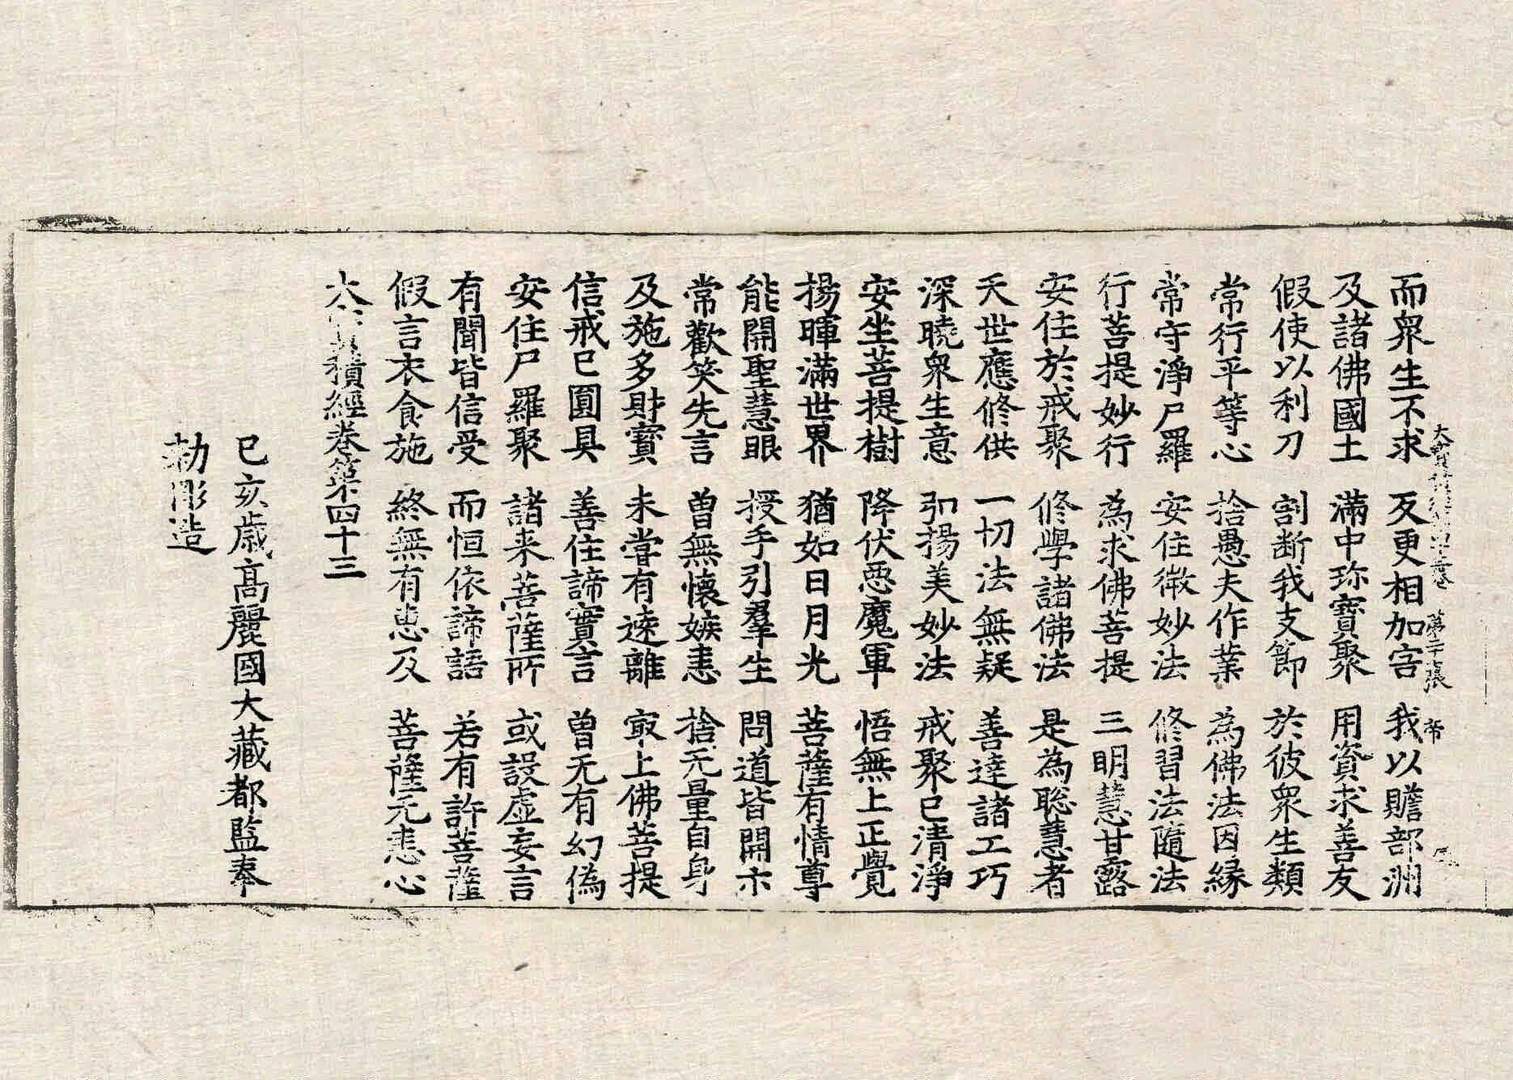 大寶積經第四十三卷 第二十張 帝
而衆生不求 反更相加害 我以贍部洲
及諸佛國土 滿中珎寶聚 用資求善友
假使以利刀 割斷我支節 於彼衆生類
常行平等心 捨愚夫作業 為佛法因縁
常守淨尸羅 安住微妙法 修習法隨法
行菩提妙行 為求佛菩提 三明慧甘露
安住於戒聚 修學諸佛法 是為聡慧者
天世應修供 一切法無疑 善達諸工巧
深曉衆生意 引揚美妙法 戒聚已清淨
安坐菩提樹 降伏惡魔軍 悟無上正覺
揚暉滿世界 猶如日月光 菩薩有情尊
能開聖慧眼 授手引羣生 問道皆開示
常歡笑先言 曾無懷嫉恚 捨无量自身
及施多財寶 未甞有逺離 㝡上佛菩提
信戒已圓具 善住諦實言 曾无有幻偽
安住尸羅聚 諸来菩薩所 或設虛妄言
有聞皆信受 而恒依諦語 若有許菩薩
假言衣食施 終無有惠及 菩薩无恚心
大寶積經卷第四十三
己亥歲髙麗國大藏都監奉
勑彫造